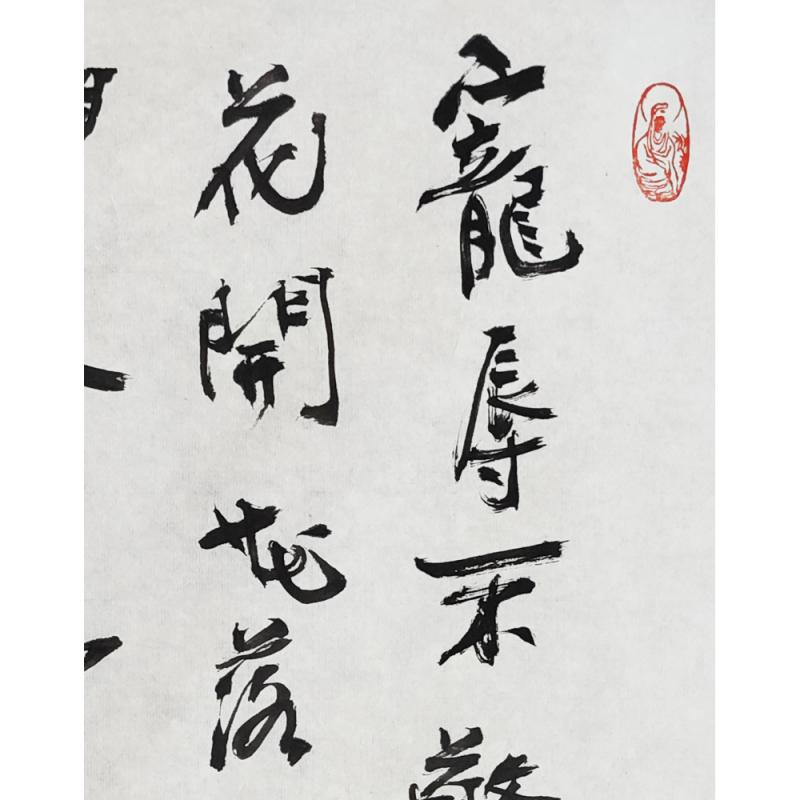 寵辱不
花開花落